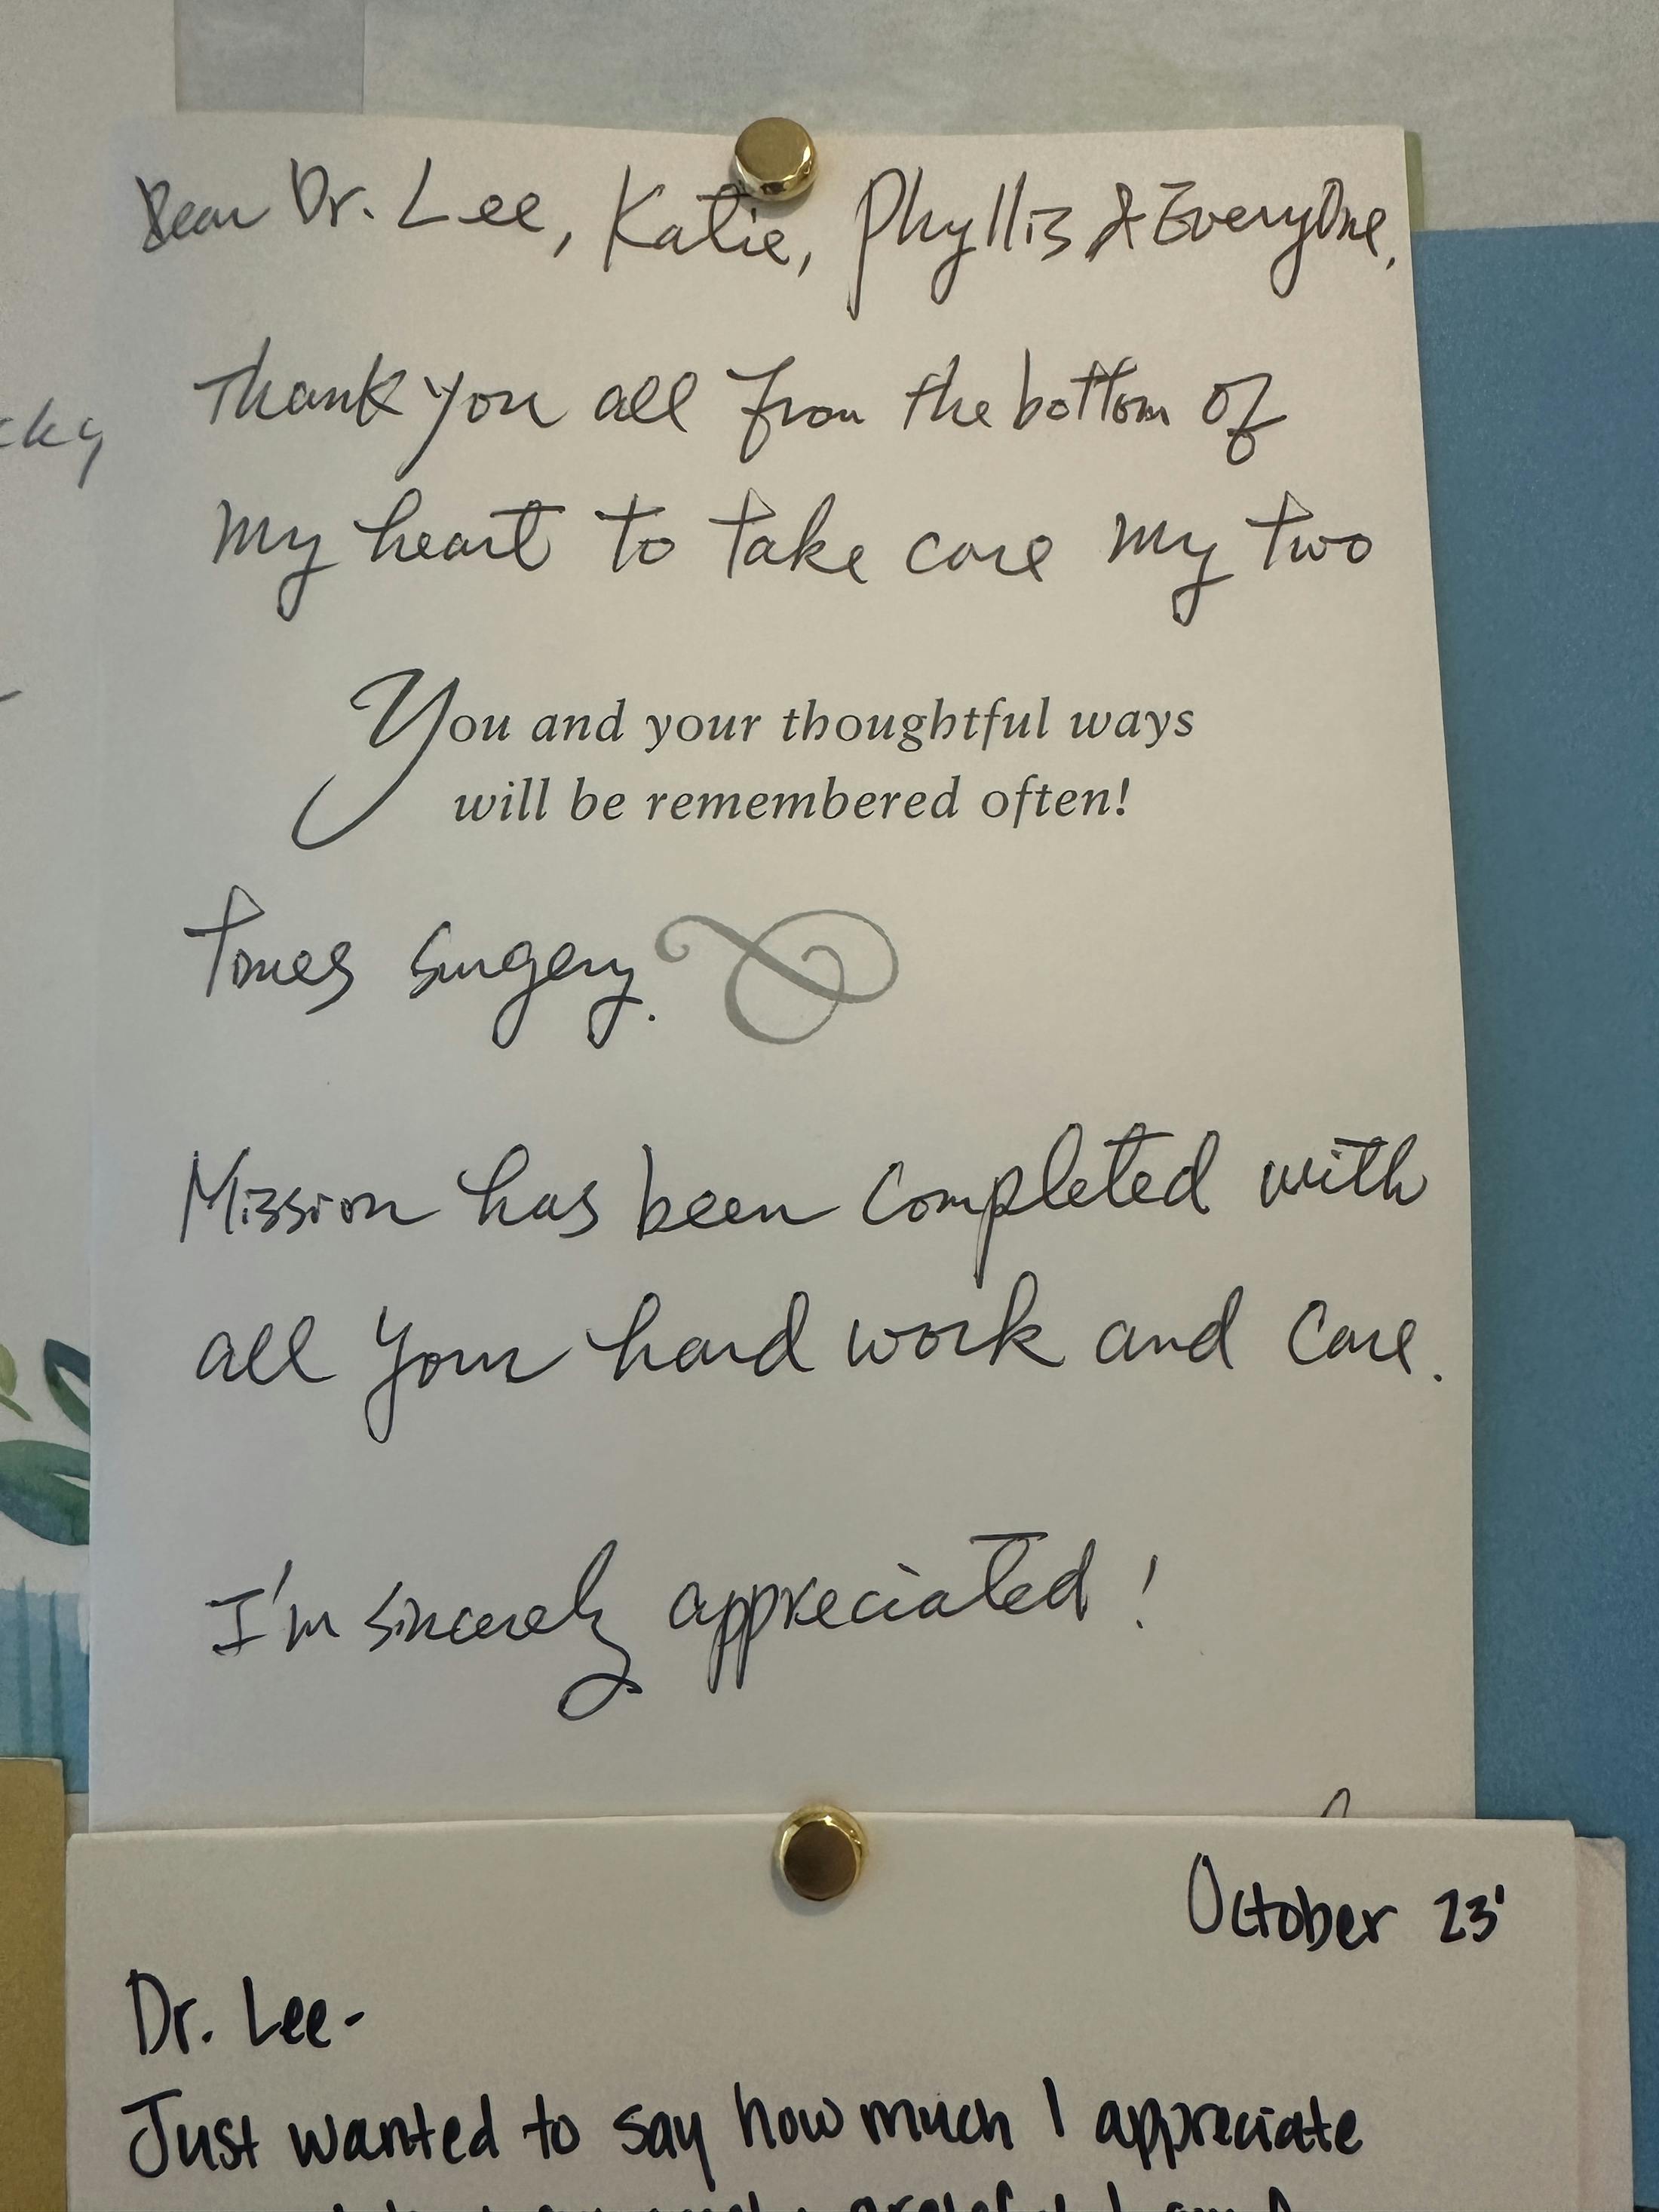 Dear Dr. Lee, Katie, Phyllis & EveryOne,
Thank you all from the bottom of
my heart to take care my two
You and your thoughtful ways
will be remembered often!
times surgery.
Mission has been completed with
all your hard work and care.
I'm sincerely appreciated!
October 23'
Dr. Lee-
Just wanted to say how much I appreciate